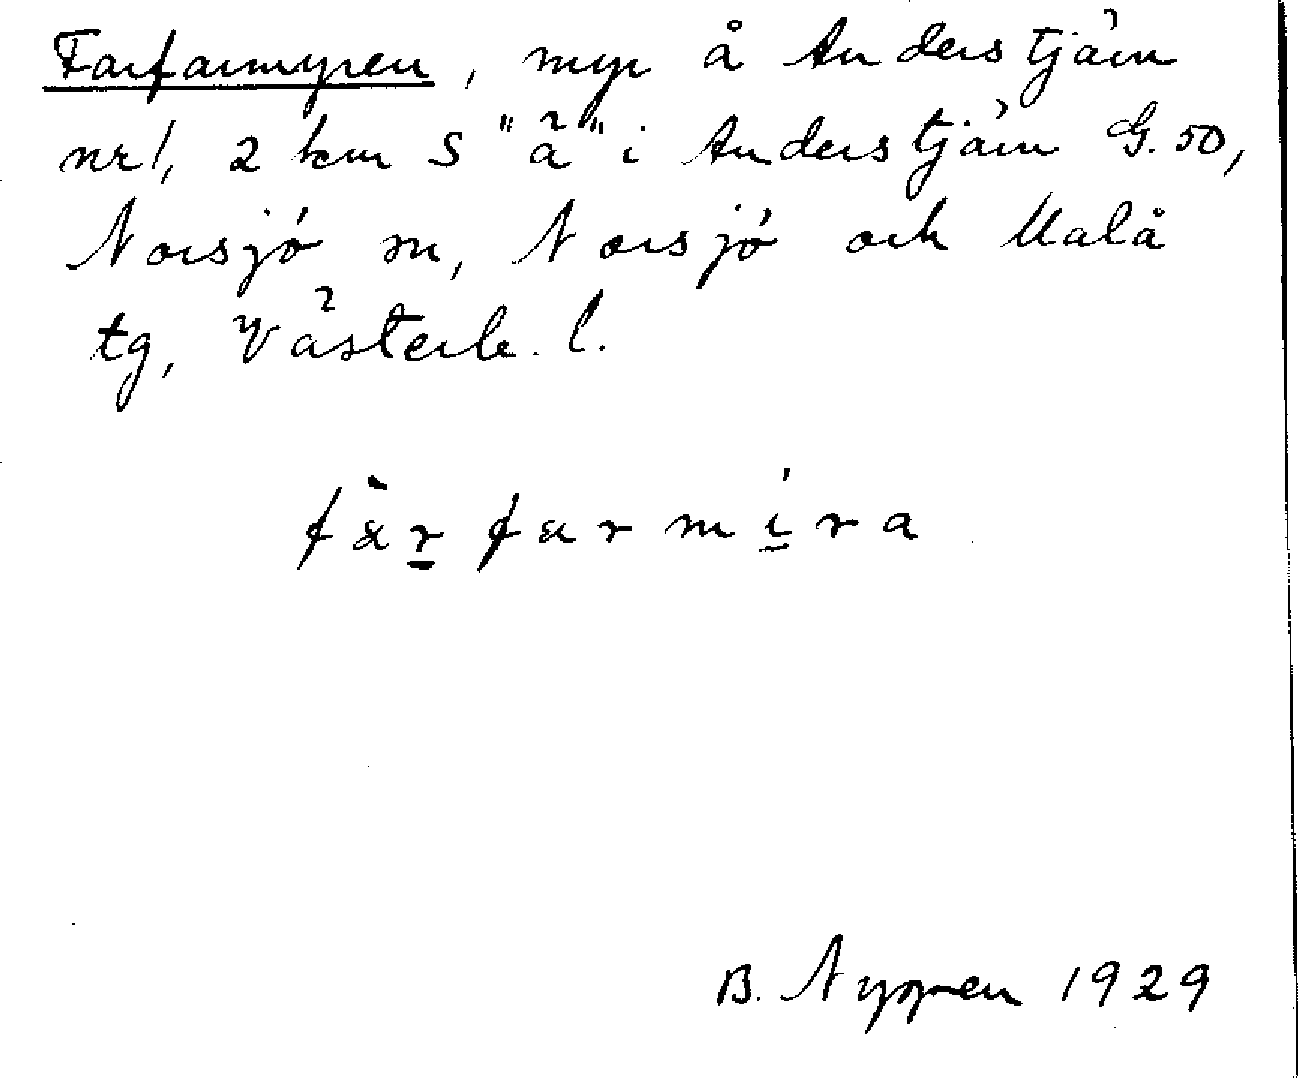 Farfarmyren, myr å Anderstjärn
nr 1, 2 km S "ä" i Anderstjärn G. 50,
Norsjö sn, Norsjö och Malå
tg, Västerb. l.
färfarmira
B. Nygren 1929